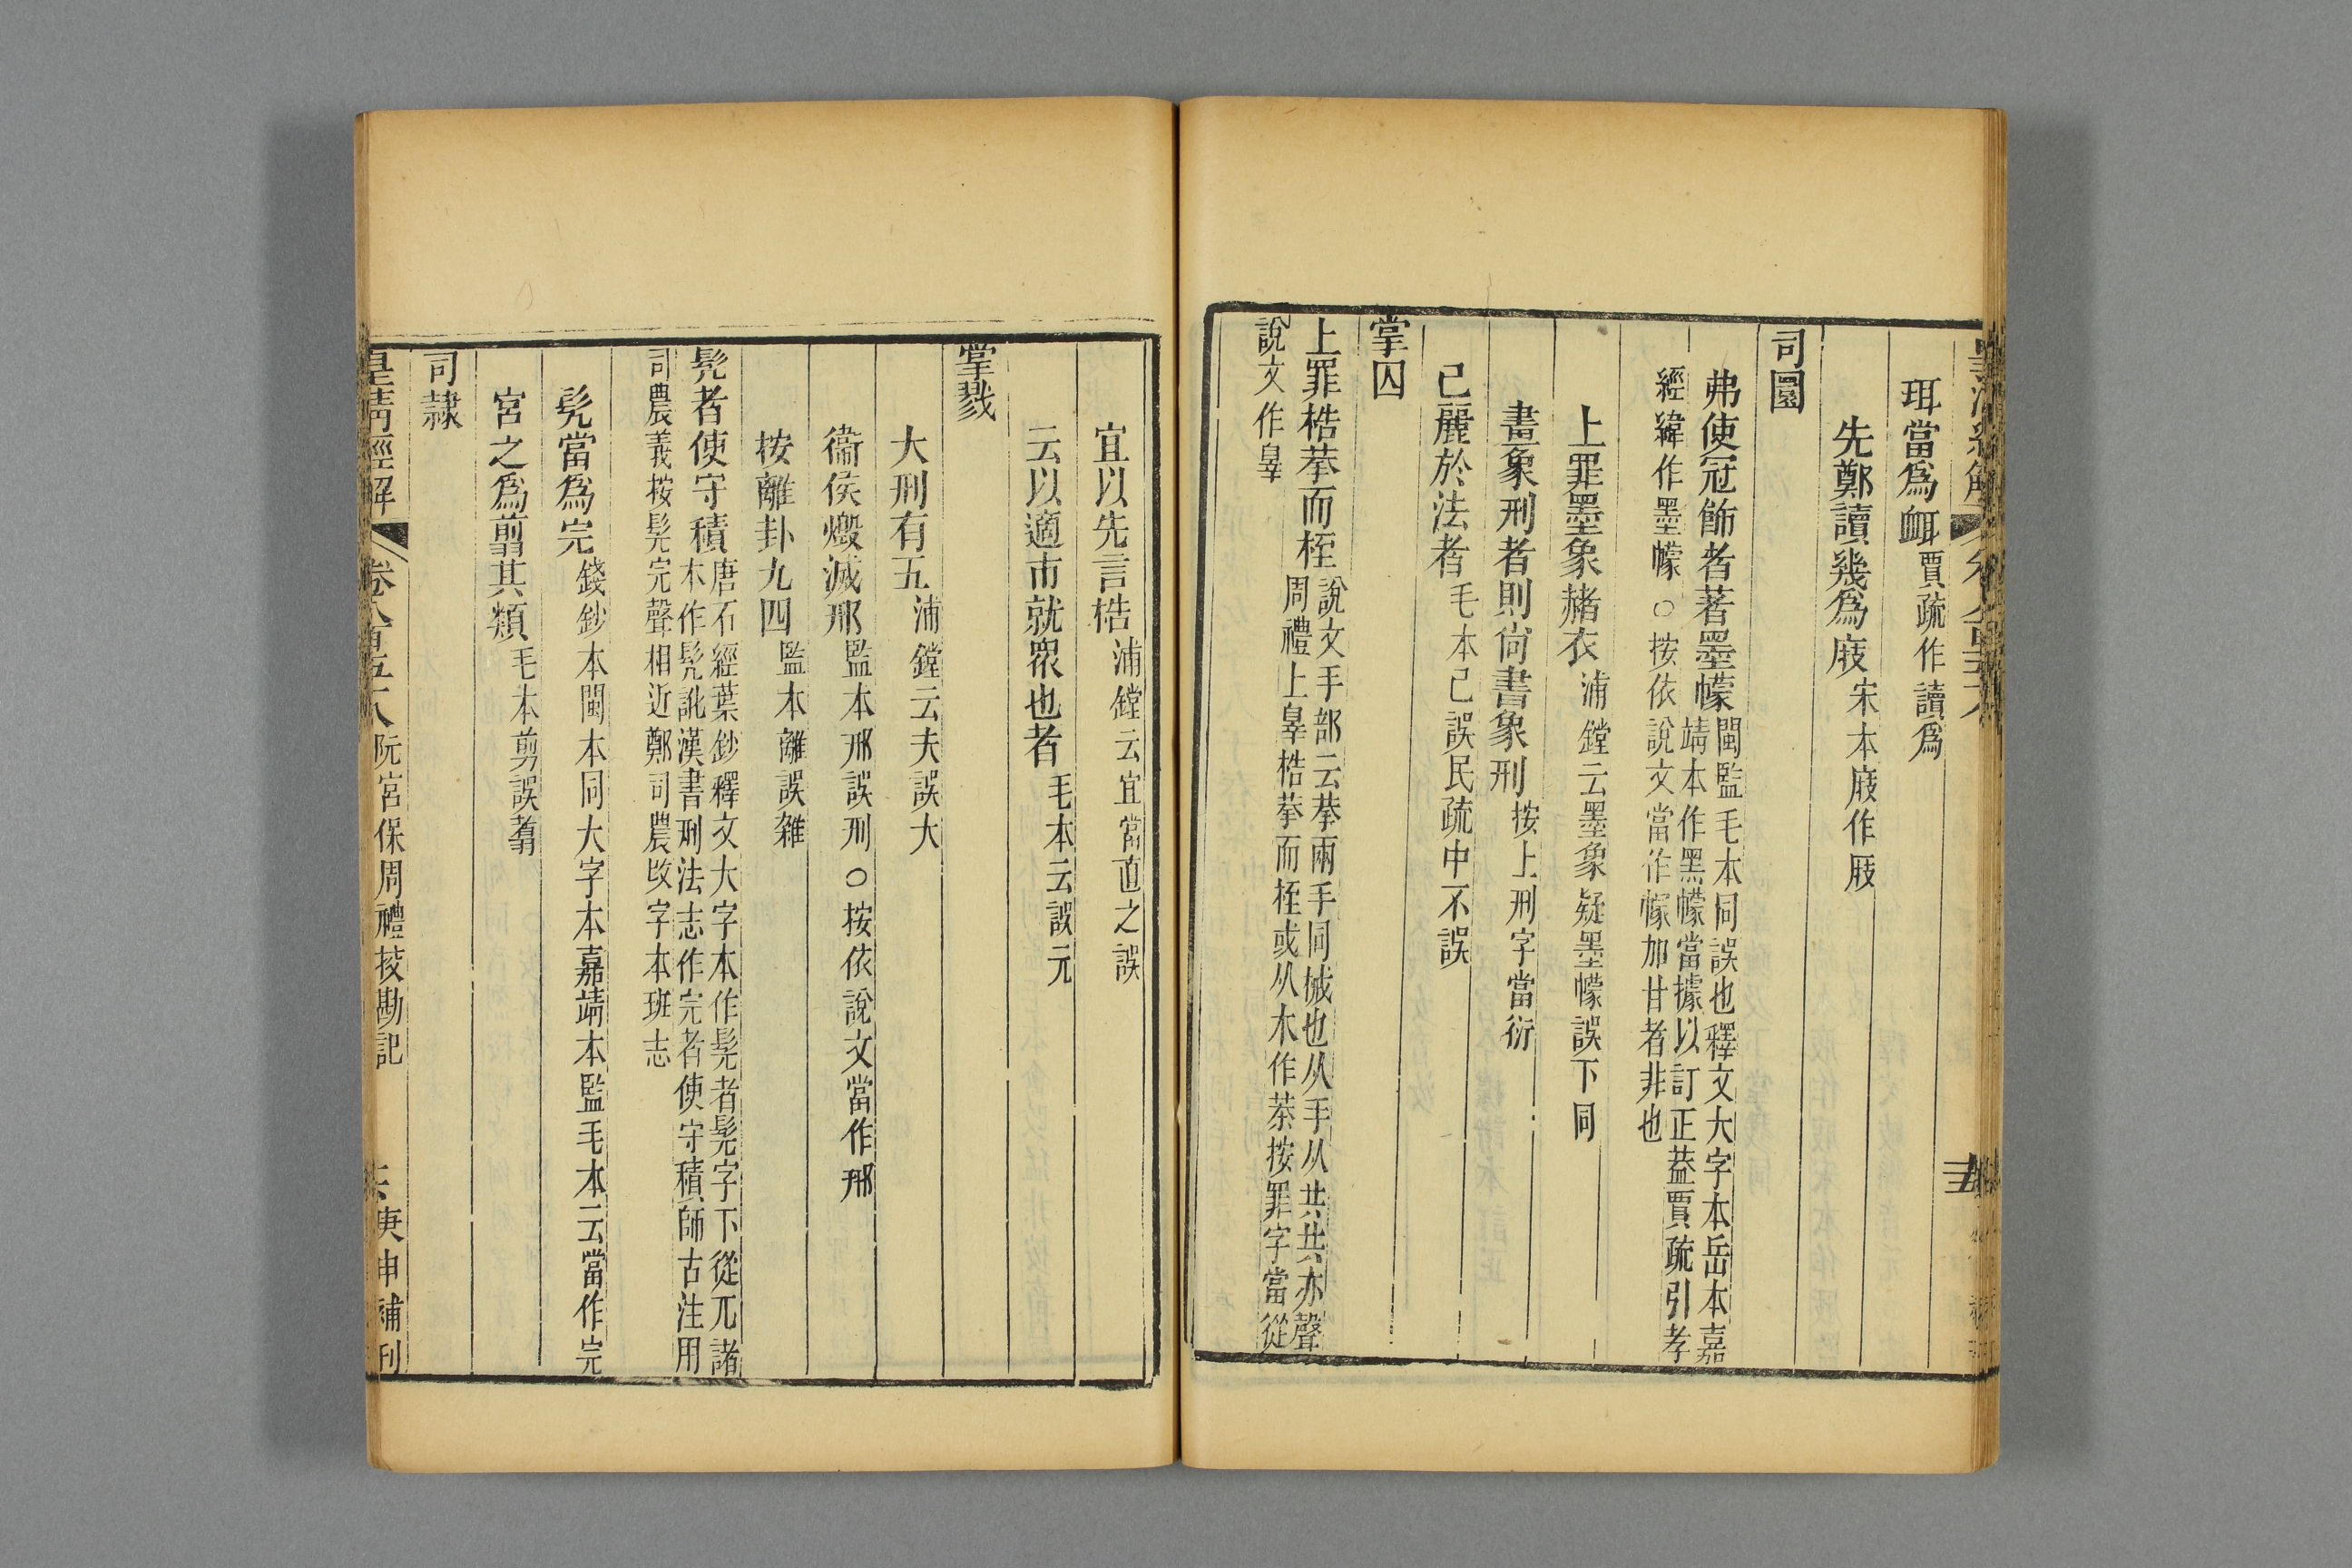 珥當爲衈賈疏作讀爲
先鄭讀幾爲庪宋本庪作㞕
司圜
弗使冠飾者著墨幪閩監毛本同誤也釋文大字本岳本嘉
靖本作黑幪當據以訂正葢賈疏引孝
經緯作墨幪○按依說文當作幏加甘者非也
上罪墨象赭衣浦鏜云墨象疑墨幪誤下同
畫象刑者則尙書象刑按上刑字當衍
已麗於法者毛本已誤民疏中不誤
掌囚
上罪梏拲而桎說文手部云拲兩手同械也从手从共共亦聲
周禮上辠梏拲而桎或从木作𣐍按罪字當從
說文作辠
宜以先言梏浦鏜云宜當直之誤
云以適市就眾也者毛本云誤元
掌戮
大刑有五浦鏜云夫誤大
衞侯燬滅邢監本邢誤刑○按依說文當作邢
按離卦九四監本離誤雜
髠者使守積唐石經葉鈔釋文大字本作髡者髡字下從兀諸
本作髠訛漢書刑法志作完者使守積師古注用
司農義按髡完聲相近鄭司農改字本班志
髠當爲完錢鈔本閩本同大字本嘉靖本監毛本云當作完
宮之爲翦其類毛本剪誤翦
司隸
皇淸經解 卷八百五十八 阮宮保周禮挍勘記 庚申補刊